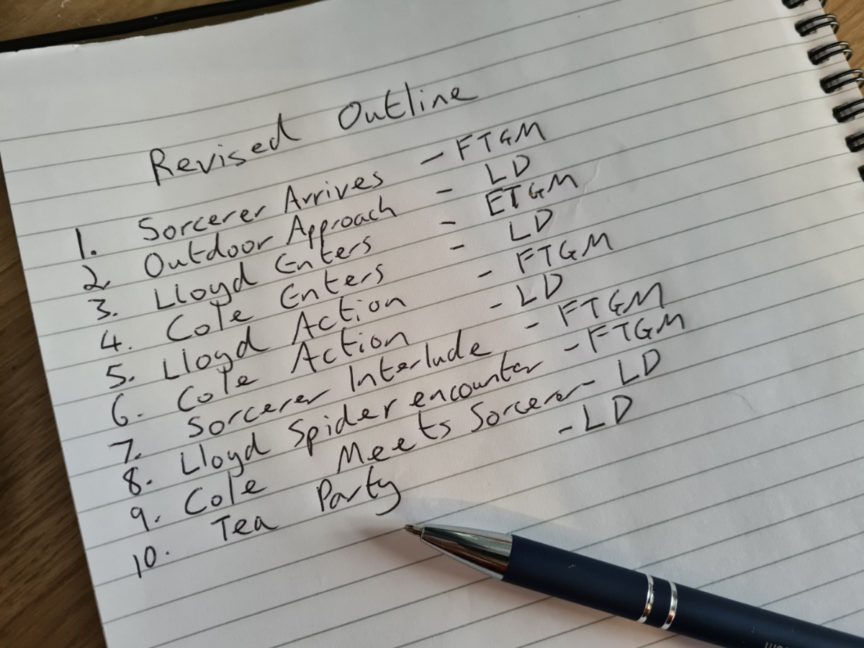 Revised Outline
1. Sorcerer Arrives - FTGM
2. Outdoor Approach - LD
3. Lloyd Enters - FTGM
4. Cole Enters - LD
5. Lloyd Action - FTGM
6. Cole Action - LD
7. Sorcerer Interlude - FTGM
8. Lloyd Spider encounter - FTGM
9. Cole Meets Sorcerer - LD
10. Tea Party - LD